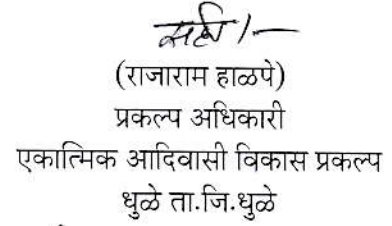 सही/-
(राजाराम हाळपे)
प्रकल्प अधिकारी
एकात्मिक आदिवासी विकास प्रकल्प
धुळे ता.जि.धुळे